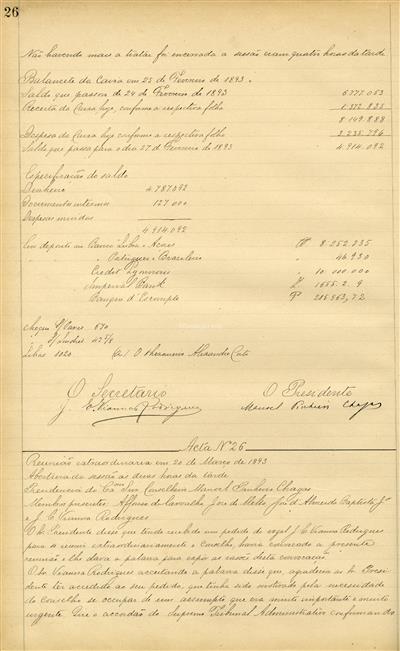 26
Não havendo mais a tratar foi encerrada a sessão eram quatro horas da tarde
Balancete da Caixa em 25 de Fevereiro de 1893.
Saldo que passou de 24 de Fevereiro de 1893 6.777.053
Receita da Caixa hoje, conforme a respectiva folha 1.372.835
8.149.888
Despesa da Caixa hoje conforme a respectiva folha 3.235.796
Saldo que passa para o dia 27 de Fevereiro de 1893 4.914.092
Especificação do saldo
Dinheiro 4.787.092
Documentos internos 127.000
Despesas miudas
4.914.092
Em deposito no Banco Lisboa e Açores 8.252.235
" Portuguez e Brazileiro " 46.930
Credit Lyonnais " 10.000.000
Imperial Bank £ 1655.2.9
Banque d'Escompte 205.963,72
Cheques s/Paris 670
s/Londres 42
Libras 1020 O Thesoureiro Alexandre
O Secretario O Presidente
J. E. Vianna Rodrigues Manoel Pinheiro Chagas
Acta Nº 26
Reunião extraordinaria em 20 de Março de 1893
Abertura da sessão as duas horas da tarde
Presidencia do Snr Conselheiro Manoel Pinheiro Chagas
Membros presentes: Affonso de Carvalho, José de Mello, José d'Almeida Baptista Jr
e J. E. Vianna Rodrigues
O Sr. Presidente disse que tendo recebido um pedido do vogal J. E. Vianna Rodrigues
para se reunir extraordinariamente o Conselho, havia convocado a presente
reunião e lhe dava a palavra para expôr as razões desta convocação
O Sr. Vianna Rodrigues acceitando a palavra disse que, agradecia ao Sr. Presi-
dente ter accedido ao seu pedido, que tinha sido motivado pela necessidade
do Conselho se occupar de um assumpto que era muito importante e muito
urgente. Que o accordão do Supremo Tribunal Administrativo confirmando